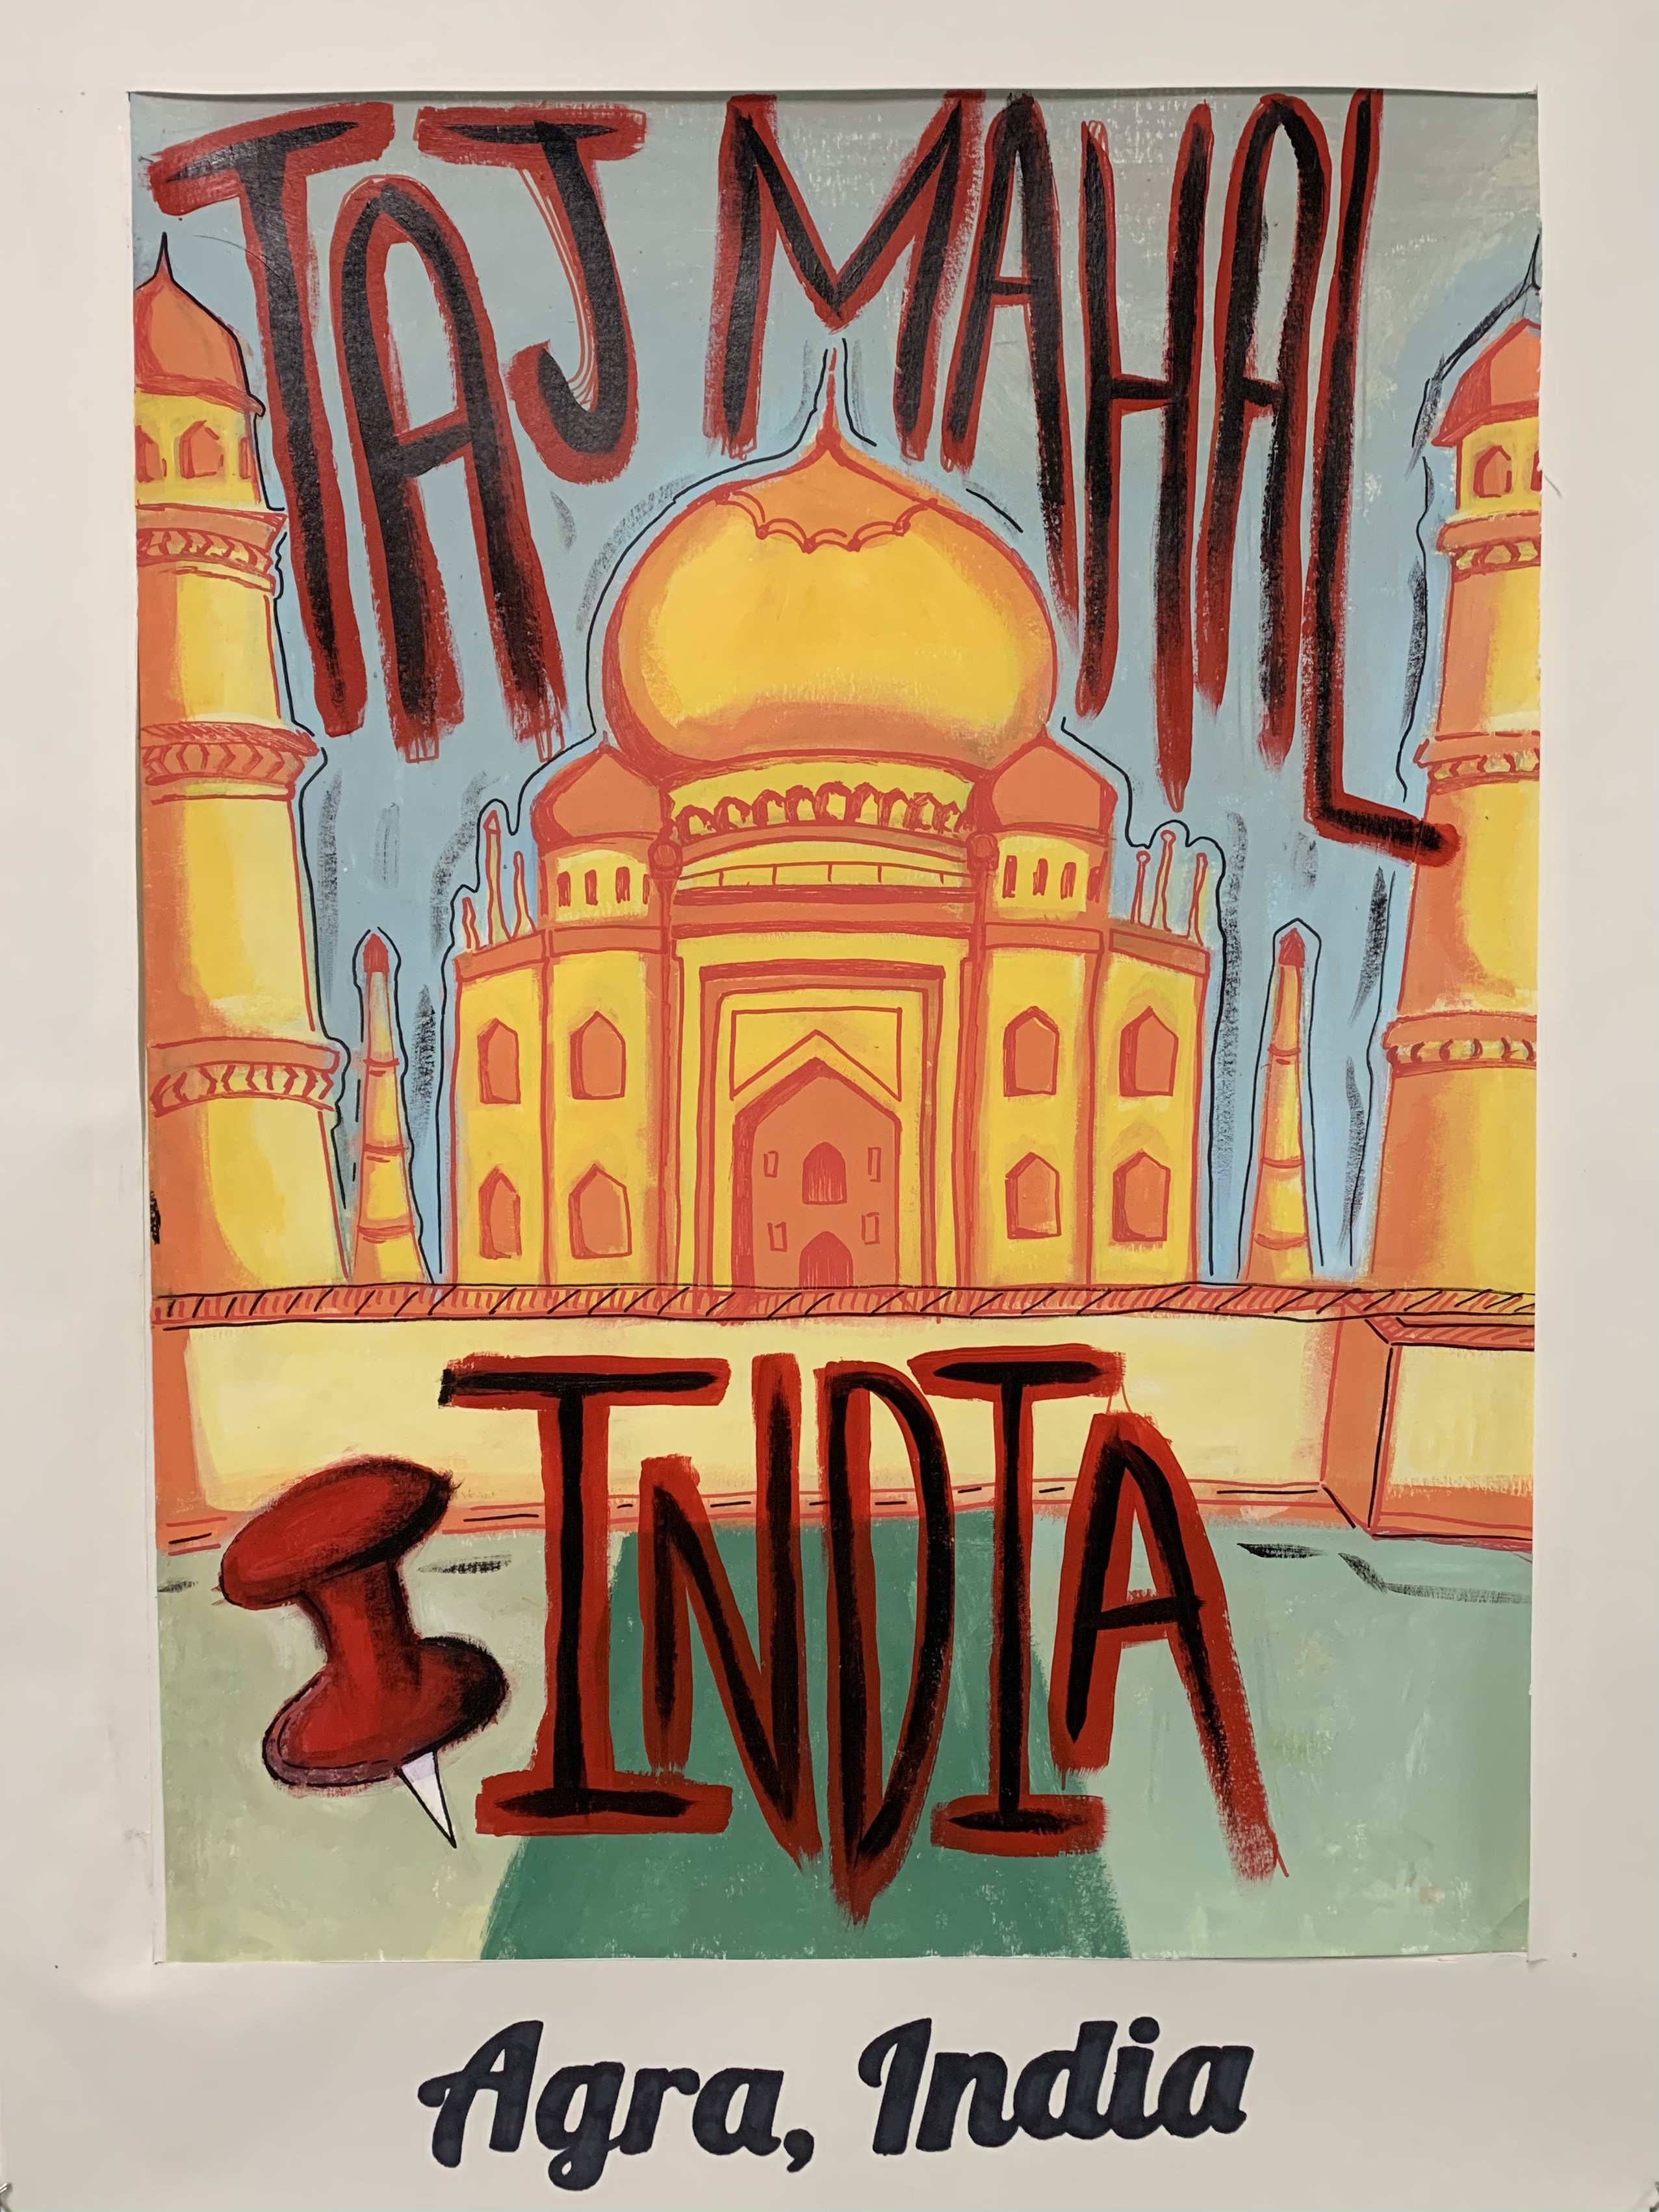 TAJ MAHAL
INDIA
Agra, India